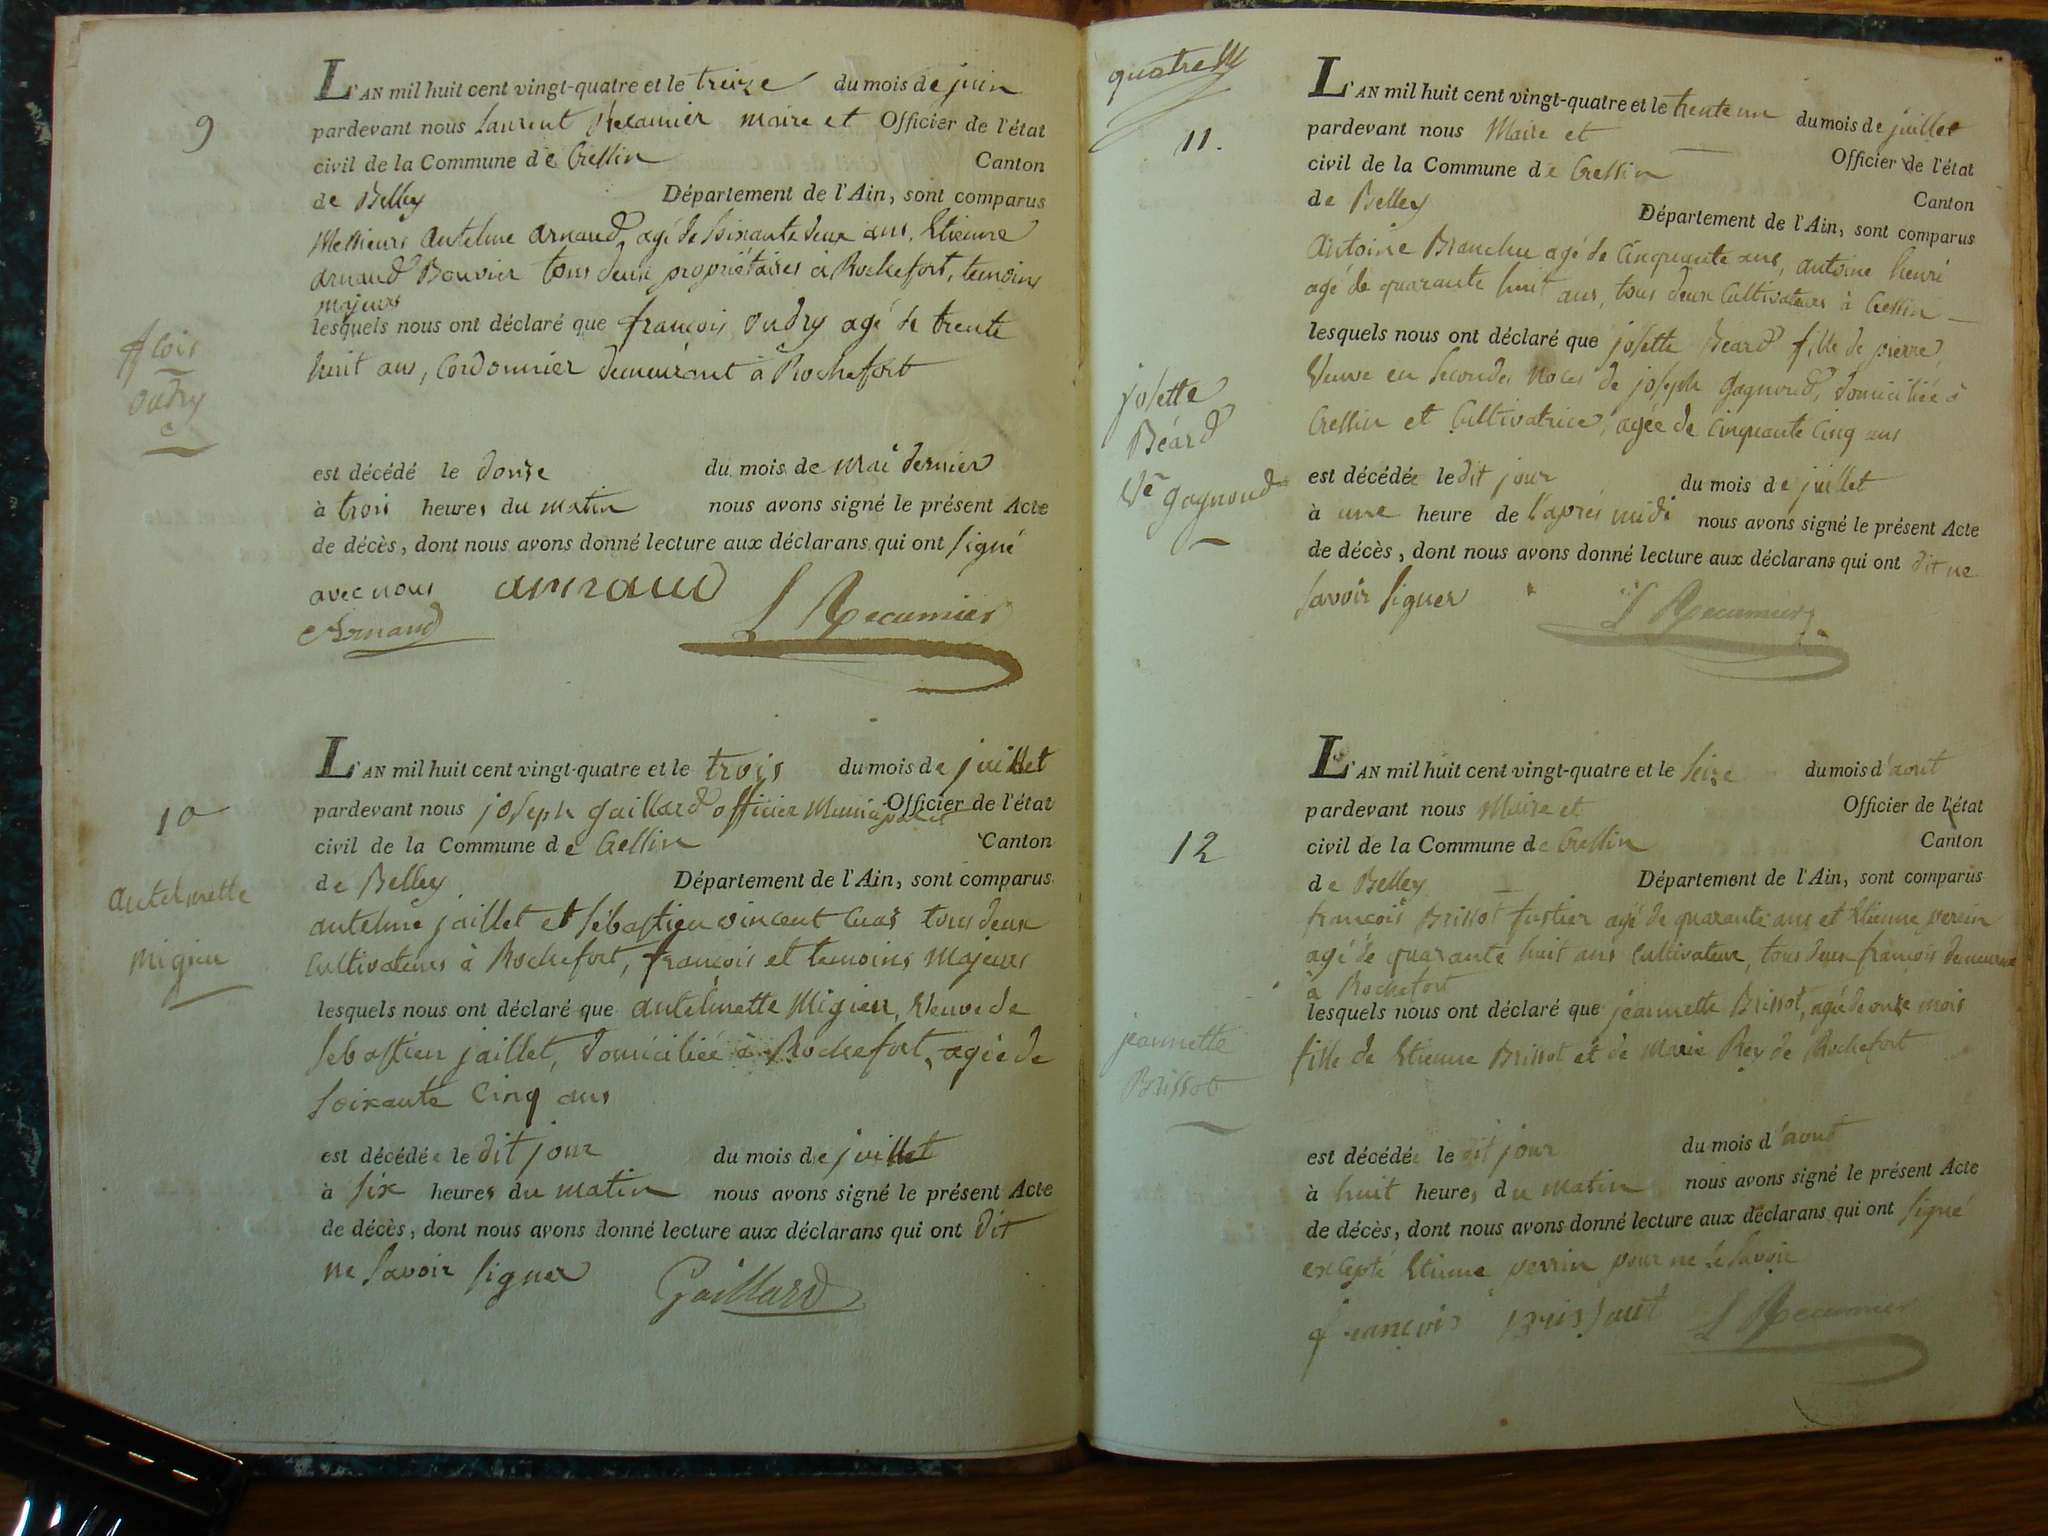 9
L'AN mil huit cent vingt-quatre et le treize du mois de juin
pardevant nous Laurent Récamier maire et Officier de l'état
civil de la Commune de Cressin Canton
de Belley Département de l'Ain, sont comparus
Messieurs Antelme Arnaud, agé de soixante deux ans, Etienne
Arnaud Bouvier tous deux propriétaires à Rochefort, temoins
majeurs
lesquels nous ont déclaré que françois Oudry agé de trente
huit ans, Cordonnier demeurant à Rochefort
fçois
oudry
est décédé le douze du mois de mai dernier
à trois heures du matin nous avons signé le présent Acte
de décès, dont nous avons donné lecture aux déclarans qui ont signé
avec nous arnaud L Recamier
Arnaud
10
L'AN mil huit cent vingt-quatre et le trois du mois de juillet
pardevant nous joseph gaillard officier Municipal Officier de l'état
civil de la Commune de Cressin Canton
de Belley Département de l'Ain, sont comparus
antelme jaillet et Sébastien vincent tous deux
Cultivateurs à Rochefort, françois et temoins Majeurs
antelmette
Migieu
lesquels nous ont déclaré que antelmette Migieu, Veuve de
Sébastien jaillet, domiciliée à Rochefort, agée de
soixante Cinq ans
est décédée le dit jour du mois de juillet
à six heures du matin nous avons signé le présent Acte
de décès, dont nous avons donné lecture aux déclarans qui ont dit
ne savoir signer Gaillard
quatre
11.
L'AN mil huit cent vingt-quatre et le trente un du mois de juillet
pardevant nous Maire et Officier de l'état
civil de la Commune de Cressin Canton
de Belley Département de l'Ain, sont comparus
Antoine Branchu agé de Cinquante ans, antoine henri
agé de quarante huit ans, tous deux Cultivateurs à Cressin
lesquels nous ont déclaré que josette Beard fille de pierre,
Veuve en secondes noces de joseph Gagnoud, domiciliée à
Cressin et Cultivatrice, agée de Cinquante Cinq ans
josette
Béard
Ve gagnoud
est décédée le dit jour du mois de juillet
à une heure de l'après midi nous avons signé le présent Acte
de décès, dont nous avons donné lecture aux déclarans qui ont dit ne
savoir signer L Recamier
12
L'AN mil huit cent vingt-quatre et le seize du mois d'aout
pardevant nous Maire et Officier de l'état
civil de la Commune de Cressin Canton
de Belley Département de l'Ain, sont comparus
françois Brissot fustier agé de quarante ans et Etienne verrin
agé de quarante huit ans Cultivateur, tous deux françois demeurant
à Rochefort
lesquels nous ont déclaré que jeannette Brissot, agée de onze mois
fille de Etienne Brissot et de Marie Rey de Rochefort
jeannette
Brissot
est décédée le dit jour du mois d'aout
à huit heures du matin nous avons signé le présent Acte
de décès, dont nous avons donné lecture aux déclarans qui ont signé
excepté Etienne verrin pour ne le savoir
françois brissaut L Recamier